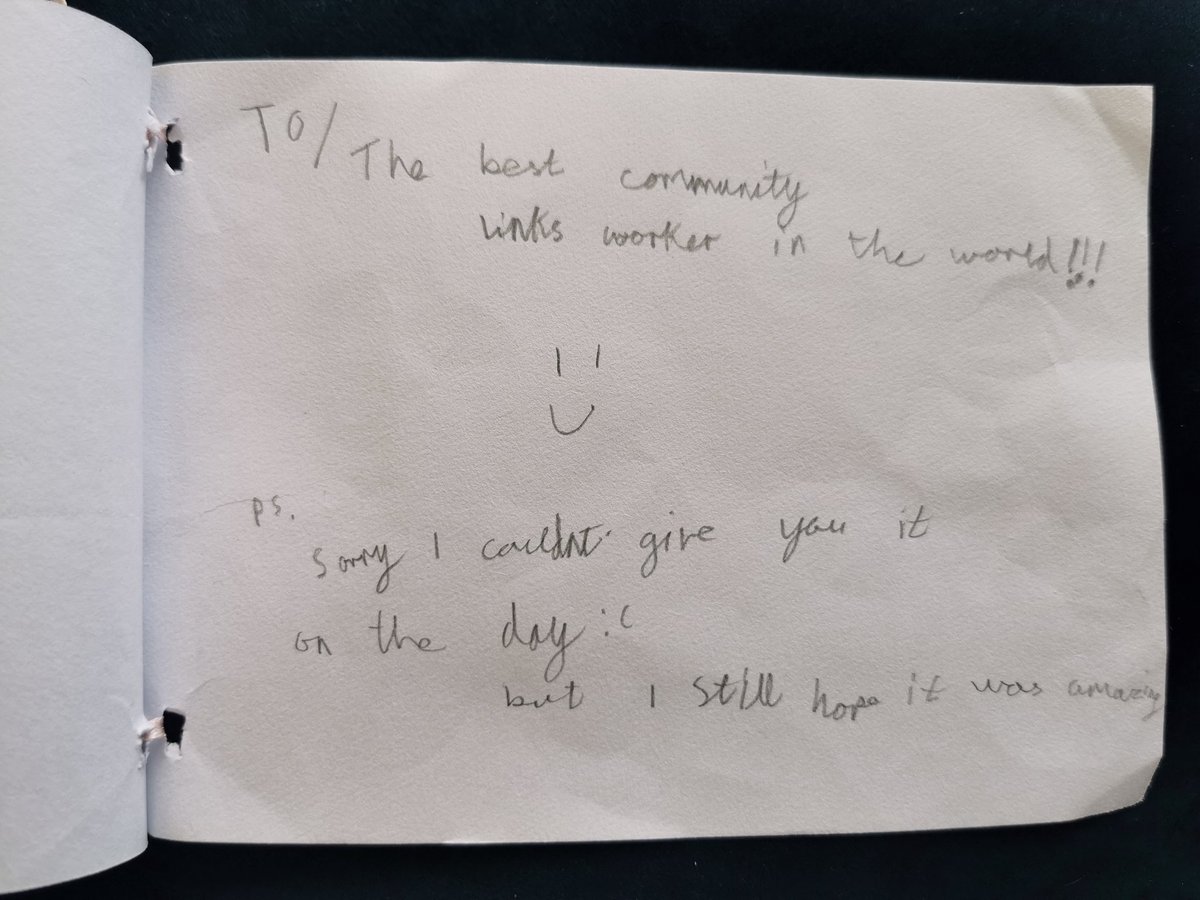 TO/ The best community
links worker in the world!!!
ps.
sorry I couldnt give you it
on the day :(
but I still hope it was amazing